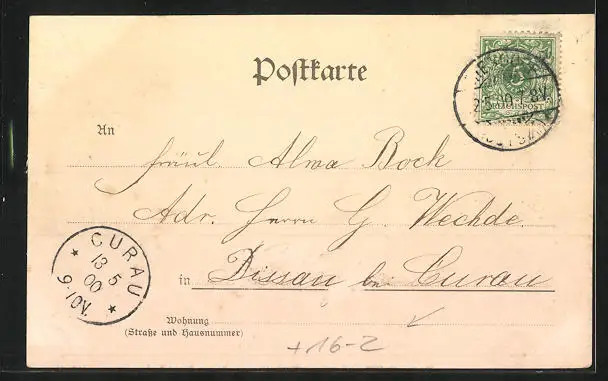 Postkarte
5
REICHSPOST
An
Fräul. Alwa Bock
Adr. Herrn G. Wechde.
in Dissau bei Curau
CURAU
13 5
00
9-10V.
Wohnung
(Straße und Hausnummer)
+16-2